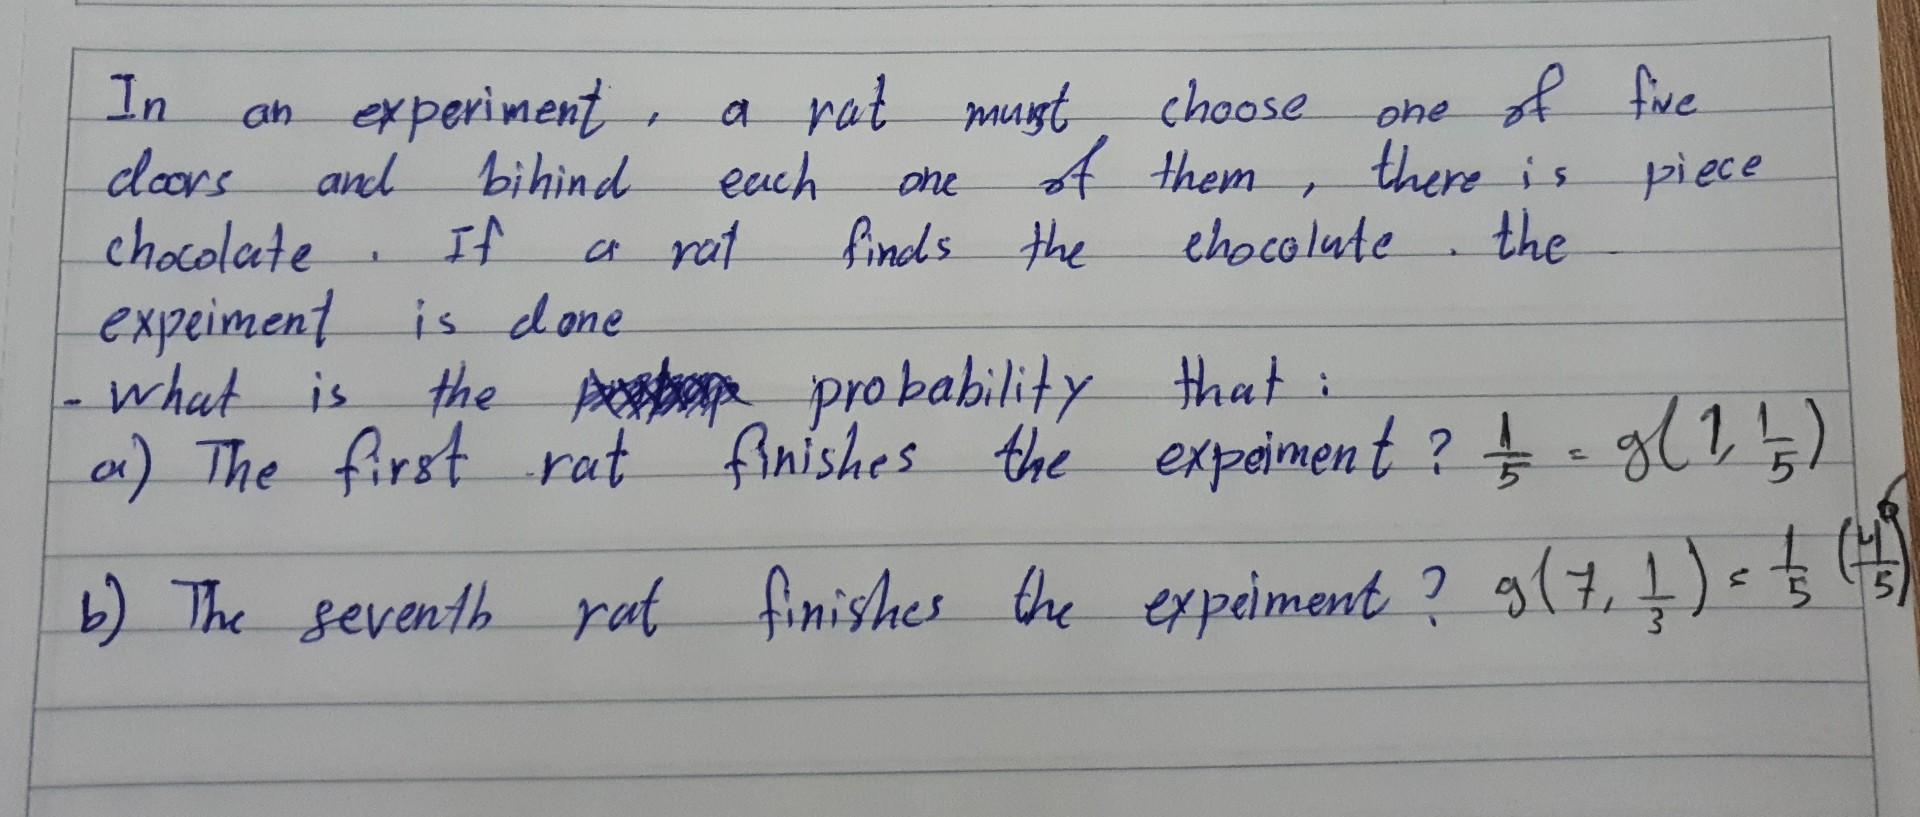 In an experiment, a rat must choose one of five
doors and bihind each one of them, there is piece
chocolate. If a rat finds the chocolate. the
expeiment is done
- What is the probability that:
a) The first rat finishes the expeiment? 1/5 = g(1, 1/5)
b) The seventh rat finishes the expeiment? g(7, 1/3) = 1/5 (4/5)^6